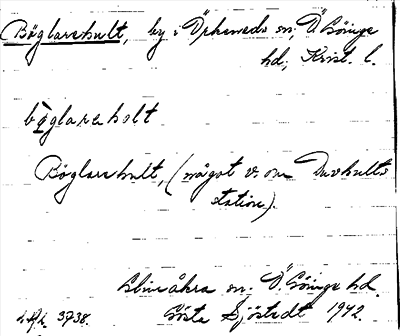 Böglarehult, by i Örkeneds sn; Ö. Göinge
hd; Krist. l.
böglareholt
Böglarehult, (något v. om Duvhults
station).
Glimåkra sn. Ö. Göinge hd.
3738.
Gösta Sjöstedt 1942.